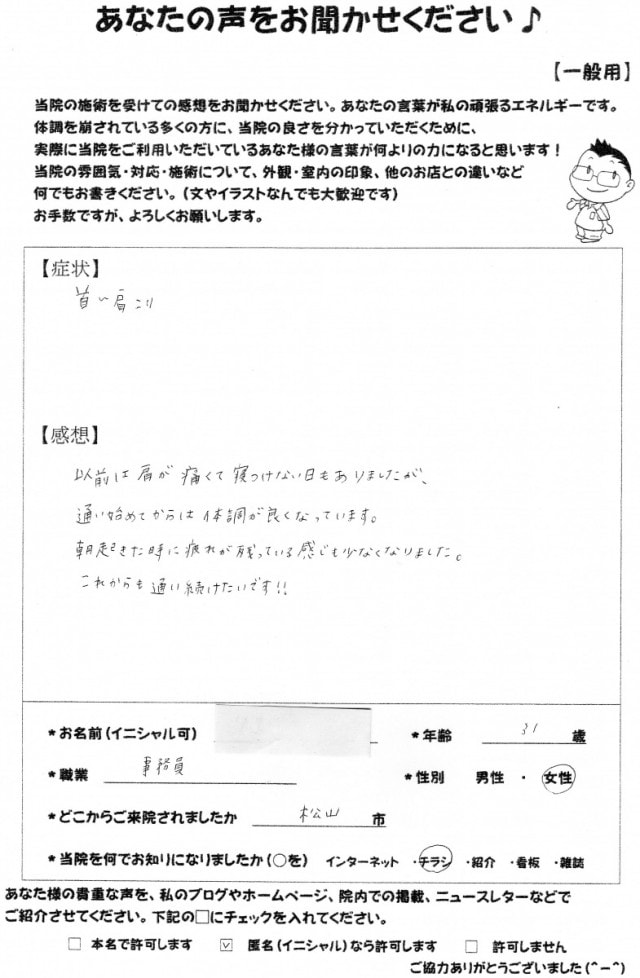 あなたの声をお聞かせください♪
【一般用】
当院の施術を受けての感想をお聞かせください。あなたの言葉が私の頑張るエネルギーです。
体調を崩されている多くの方に、当院の良さを分かっていただくために、
実際に当院をご利用いただいているあなた様の言葉が何よりの力になると思います!
当院の雰囲気・対応・施術について、外観・室内の印象、他のお店との違いなど
何でもお書きください。(文やイラストなんでも大歓迎です)
お手数ですが、よろしくお願いします。
【症状】
首い肩こり
【感想】
以前は肩が痛くて寝つけない日もありましたが、
通い始めてからは体調が良くなっています。
朝起きた時に疲れが残っている感じも少なくなりました。
これからも通い続けたいです!!
*お名前(イニシャル可) *年齢 31 歳
*職業 事務員 *性別 男性 ・ 女性
*どこからご来院されましたか 松山 市
*当院を何でお知りになりましたか(○を) インターネット ・チラシ ・紹介 ・看板 ・雑誌
あなた様の貴重な声を、私のブログやホームページ、院内での掲載、ニュースレターなどで
ご紹介させてください。下記の□にチェックを入れてください。
□ 本名で許可します ☑ 匿名(イニシャル)なら許可します □ 許可しません
ご協力ありがとうございました(^-^)